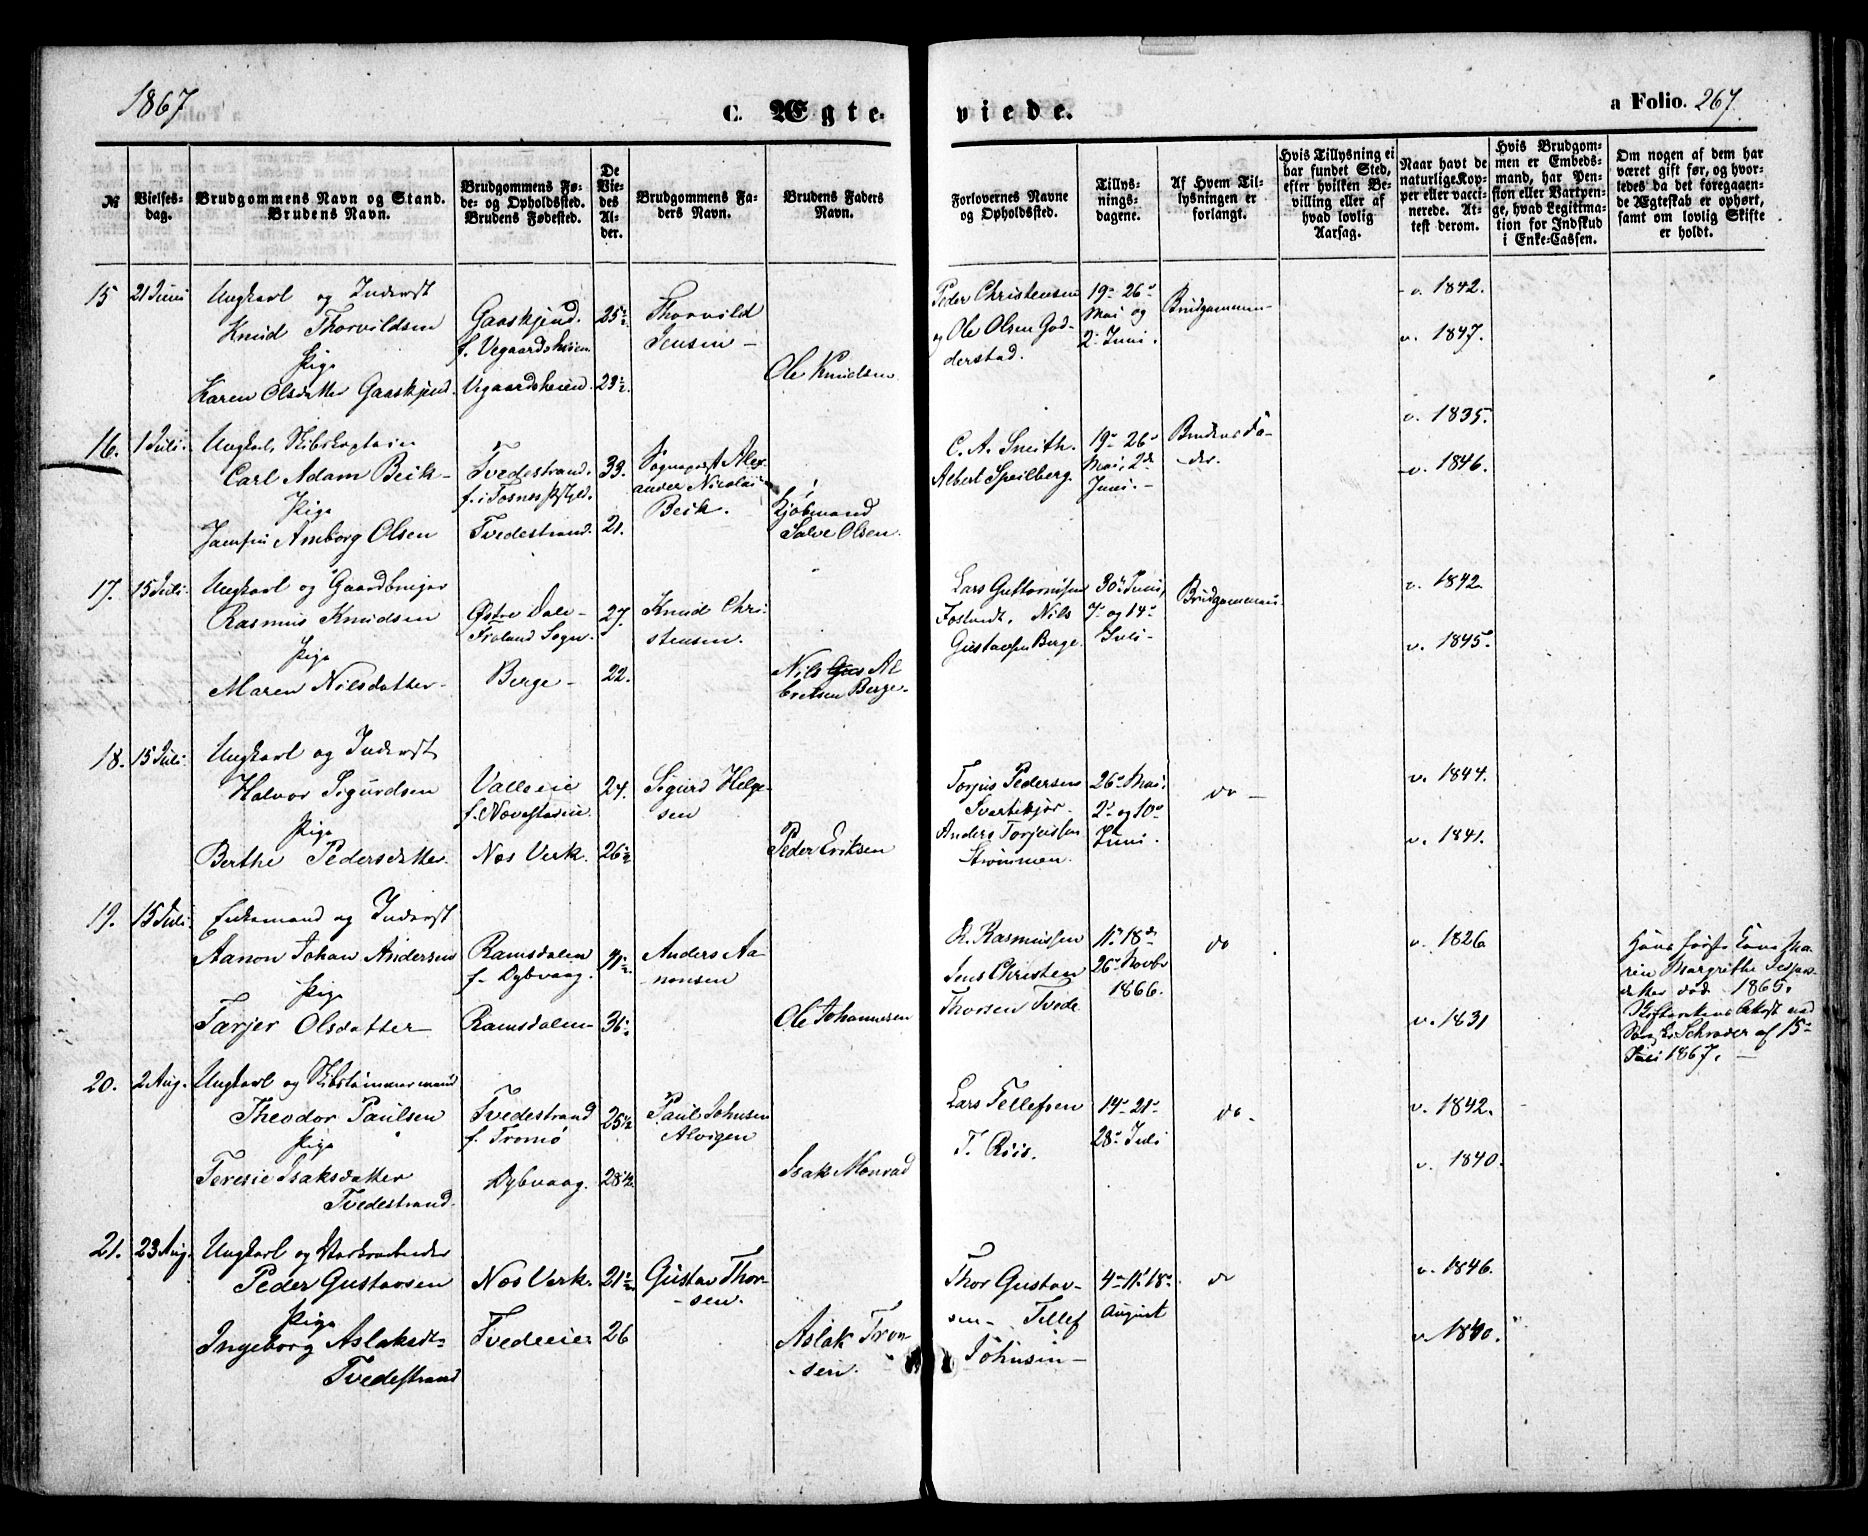 1867
C. Ægte
viede.
a Folio. 267.
№
Vielses-
dag.
Brudgommens Navn og Stand.
Brudens Navn.
Brudgommens Fø-
de- og Opholdsted.
Brudens Fødested.
De
Vie-
des
Al-
der.
Brudgommens Fa-
ders Navn.
Brudens Faders
Navn.
Forlovernes Navne
og Opholdsted.
Tillys-
nings-
dagene.
Af Hvem Til-
lysningen er
forlangt.
Hvis Tillysning ei
har fundet Sted,
efter hvilken Be-
villing eller af
hvad lovlig
Aarsag.
Naar havt de
naturlige Kop-
per eller vacci-
nerede. At-
test derom.
Hvis Brudgom-
men er Embeds-
mand, har Pen-
sion eller Vartpen-
ge, hvad Legitima-
tion for Indskud
i Enke-Cassen.
Om nogen af dem har
været gift før, og hvor-
ledes da det foregaaen-
de Ægteskab er ophørt,
samt om lovlig Skifte
er holdt.
15 21 Juni
Ungkarl og Inderst
Knud Thorvildsen
Pige
Karen Olsdatter Gaaskjend.
Gaaskjend.
f. Vegaardsheien.
Vegaardsheien.
25 1/2
23 1/2
Thorvild
Jensen -
Ole Knudsen
Peder Christensen
og Ole Olsen God-
derstad.
19de 26de
Mai og
2. Juni.
Brudgommen
v. 1842.
v. 1847.
16. 1 Juli
Ungkarl, Skibskaptain
Carl Adam Beik -
Pige
Amborg Olsen
Tvedestrand.
f. i Fosnes Pgjeld.
Tvedestrand.
33.
21.
Sognepræst Alex-
ander Nicolai
Beik.
Kjøbmand
Salve Olsen.
C. A. Smith.
Albert Speilberg.
19de 26de
Mai, 2de
Juni. -
Brudens Fa-
der.
v. 1835.
v. 1846.
17. 15 Juli
Ungkarl og Gaardbruger
Rasmus Knudsen
Pige
Maren Nilsdatter -
Østre Dale -
Froland Sogn.
Berge -
27.
22.
Knud Chri-
stensen.
Nils Al-
bretsen Berge.
Lars Guttormsen
Fosland. Nils
Gustavsen Berge.
30. Juni,
7de og 14de
Juli -
Brudgommen
v. 1842.
v. 1845.
18. 15 Juli.
Ungkarl og Inderst
Halvor Sigurdsen
Pige
Berthe Pedersdatter.
Valleeie
Nes Verk.
24.
26 1/2
Sigurd Helge-
sen
Peder Eriksen
Torjus Pedersen
Svartekjør.
Anders Torjussen
Strømmen.
26de Mai,
2de og 10de
Juni.
do -
v. 1844.
v. 1841.
19. 15 Juli.
Enkemand og Inderst
Aanon Johan Andersen
Pige
Tarjer Olsdatter
Ramsdalen
f. Dybvaag.
Ramsdalen
41 1/2
36
Anders Aa-
nonsen
Ole Johannesen
R. Rasmussen
Jens Christen
Thorsen Tvede
11te 18de
26de Novbr
1866.
do
v. 1826
v. 1831
Hans første Kone Ma-
rin Margrethe Jesper-
datter død 1865.
Skifteretens Attest ved
Schrøder af 15de
Juli 1867. -
20. 2 Aug.
Ungkarl og Skibstømmermand
Theodor Paulsen
Pige
Teresie Isaksdatter
Tvedestrand.
Tvedestrand
f. Tromø
Dybvaag.
25 1/2
28 1/2
Paul Johnsen
Alvigen
Isak Monrad
Lars Tellefsen
T. Riis.
14de 21de
28de Juli
do.
v. 1842.
v. 1840.
21. 23 Aug.
Ungkarl og Værksarbeider
Peder Gustavsen
Pige
Ingeborg Aslaksdtr
Tvedestrand
Nes Verk.
Tvedeeie
21 1/2
26
Gustav Thor-
-sen.
Aslak Tron-
-sen.
Thor Gustav-
sen - Tellef
Johnsen -
4de 11te 18de
August
do
v. 1846.
v. 1840.